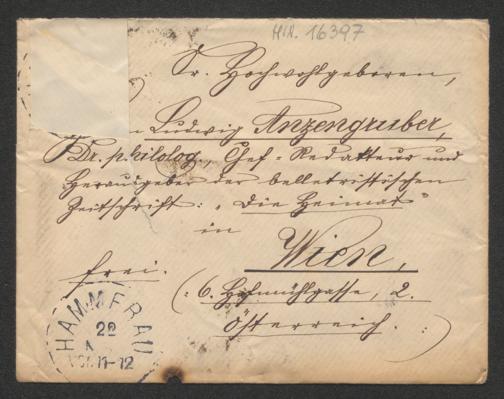 HIN. 16397
Sr. Hochwohlgeboren,
Ludwig Anzengruber,
Dr. philolog., Chef-Redakteur und
Herausgeber der belletristischen
Zeitschrift: "Die Heimat"
in
Wien,
frei.
(: 6. Hofmühlgasse, 2.
Österreich. :)
HAMMERAU
22
11-12